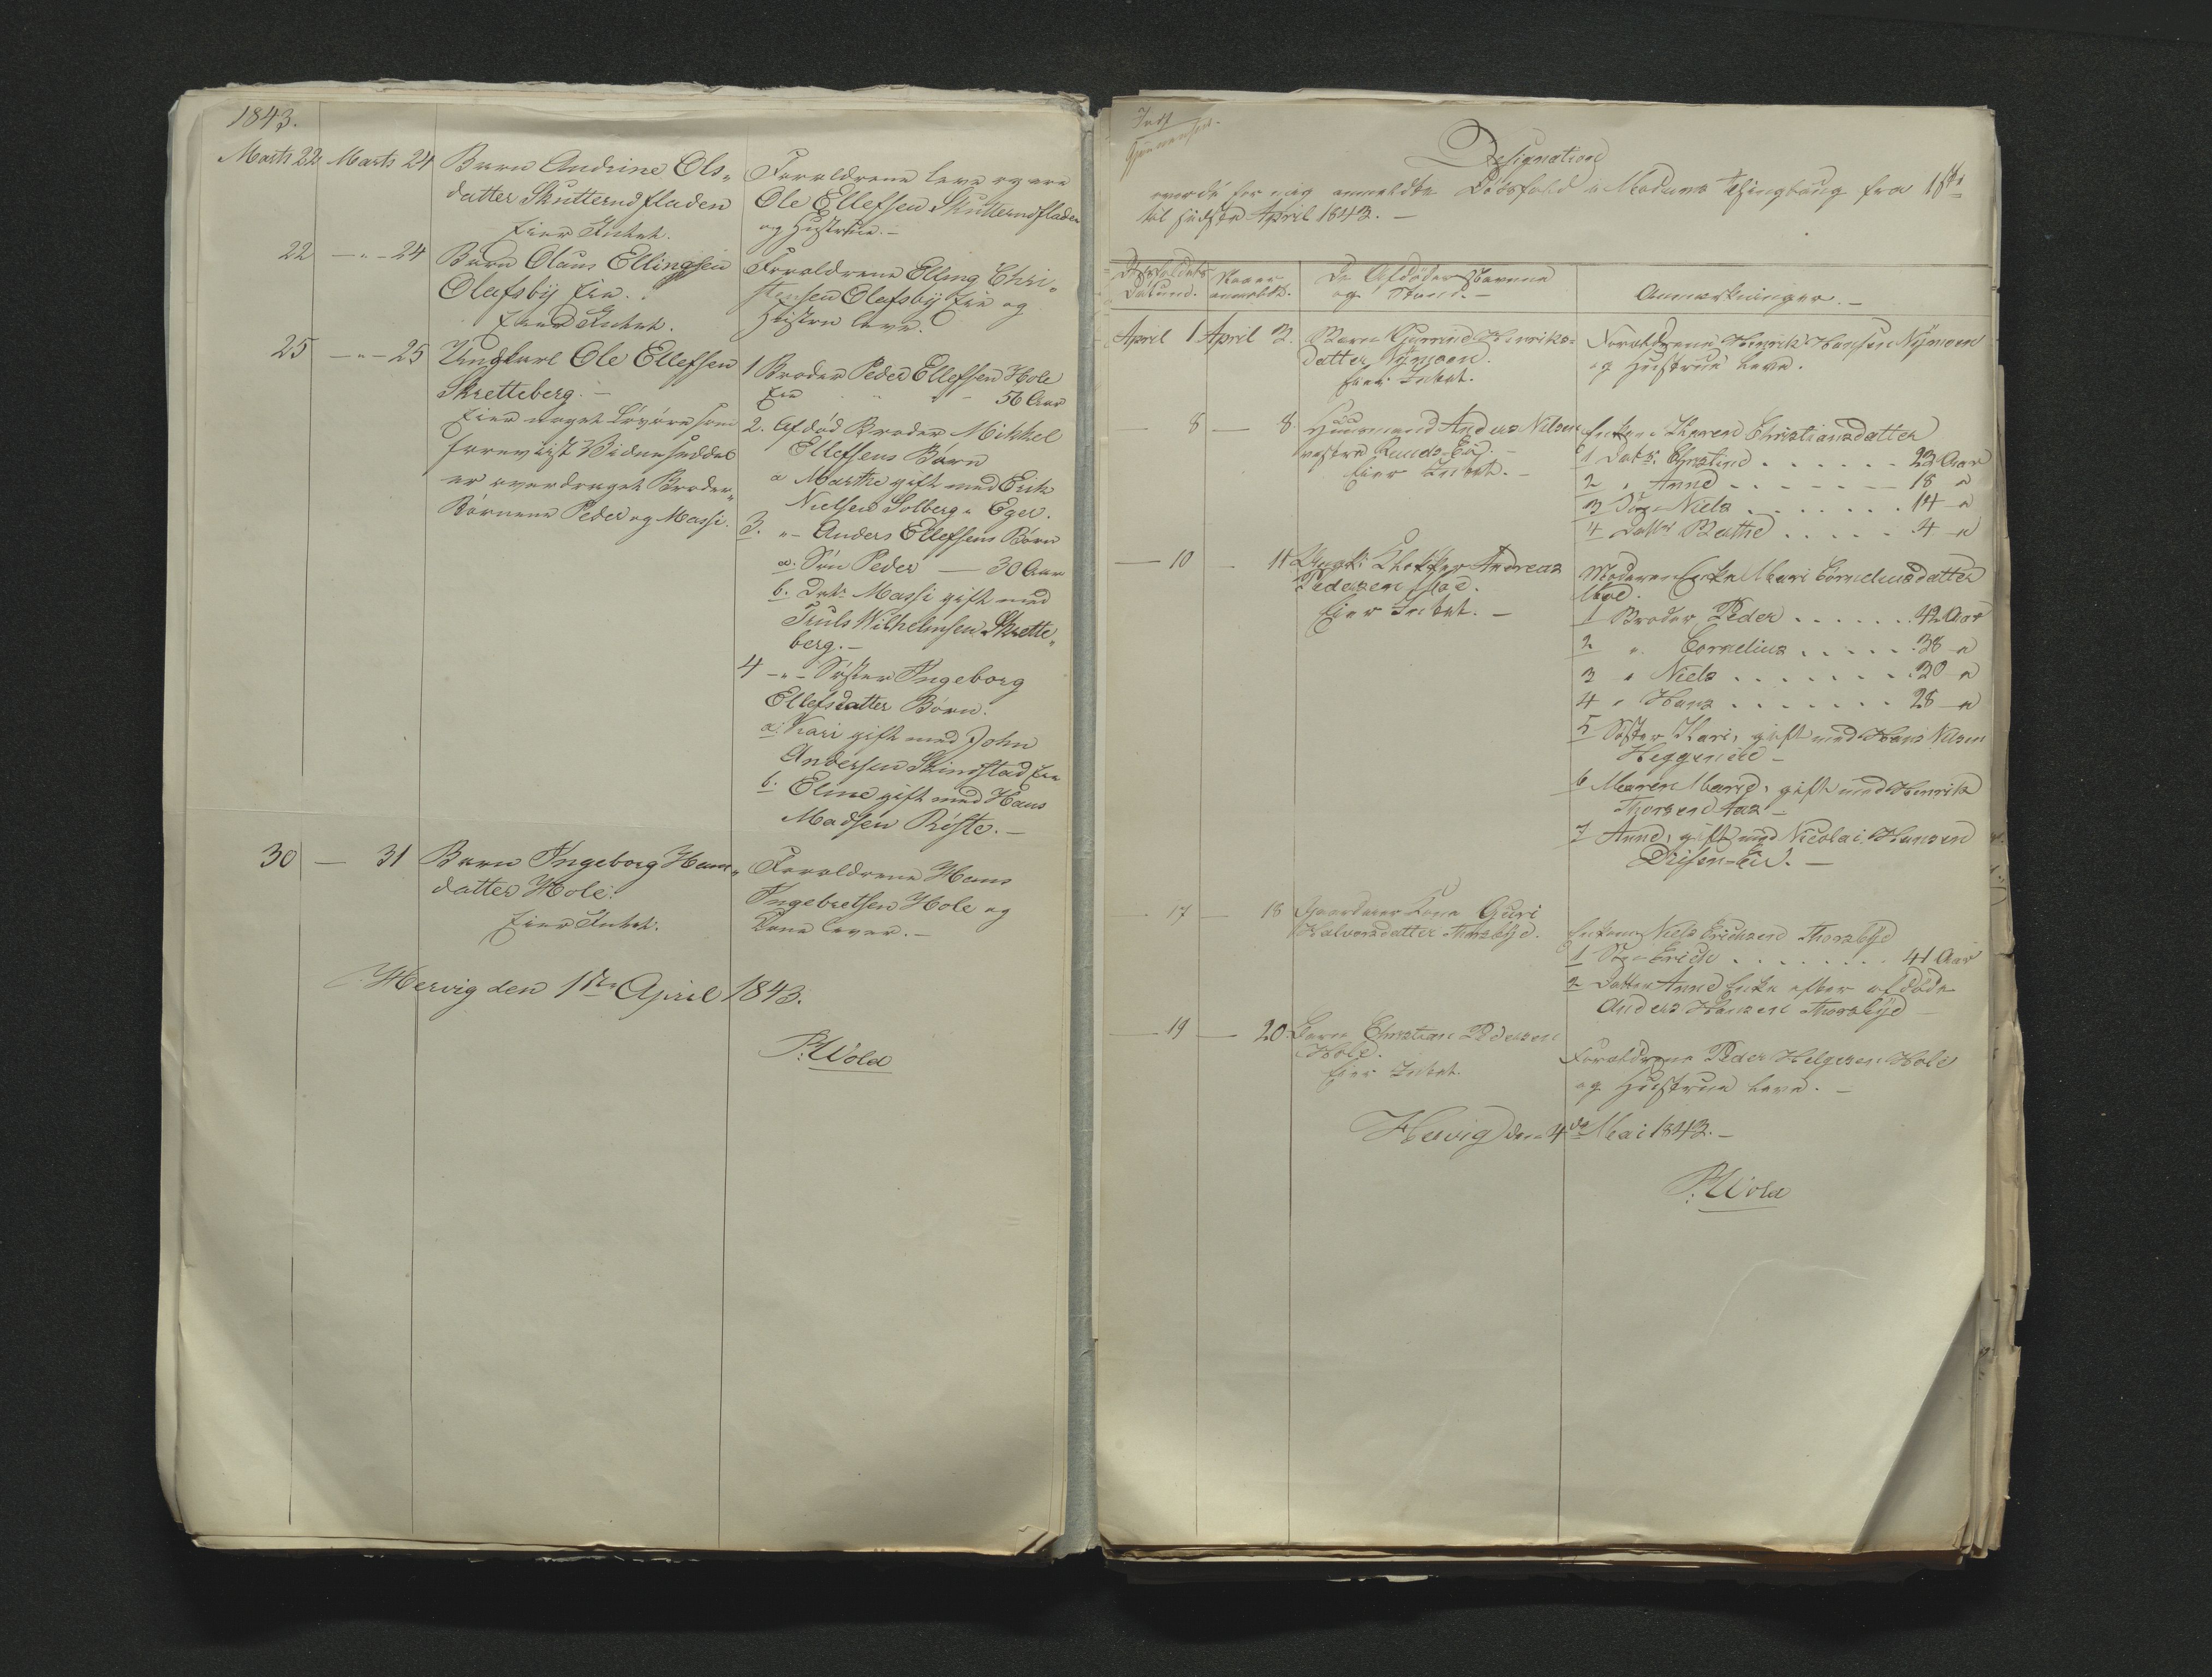 1843.
Marts 22 Marts 24 Barn Andrine Ols„
datter Skutterudfladen
Eier Intet.
Forældrene leve og ere
Ole Ellefsen Skutterudfladen
og Hustrue.—
22 —„— 24 Barn Olaus Ellingsen
Olafsbÿ Eie.
Eier Intet.
Forældrene Elling Chri„
stensen Olafsbÿ Eie og
Hustru leve.
25 —„— 25 Ungkarl Ole Ellefsen
Skretteberg.—
Eier noget Løsøre som
forevist Vidneseddel
er overdraget Broder„
Børnene Peder og Massi.
1 Broder Peder Ellefsen Hole
Eie 56 Aar
2. Afdød Broder Mikkel
Ellefsens Børn
a Marthe gift med Erik
Nielsen Solberg Eger.
3. „— Anders Ellefsens Børn
a. Søn Peder — 30 Aar
b. Datr Massi gift med
Truls Wilhelmsen Skrette„
berg.—
4 —„— Søster Ingeborg
Ellefsdatter Børn.
a. Kari gift med John
Andersen Skinstad Eie
b. Eline gift med Hans
Madsen Røste.—
30 — 31 Barn Ingeborg Hans„
datter Hole.
Eier Intet.
Forældrene Hans
Ingebretsen Hole og
Kone lever.—
Hervig den 1ste April 1843.
P. Wold
Designation
over de for mig anmeldte Dødsfald i Modums Thinglaug fra 1ste
til sidste April 1843.—
Dødsfaldets
Datum.
Naar
anmeldt.
De Afdødes Navne
og Stand.—
Anmærkninger.—
April 1 April 3. Barn Gunnild Henriks„
datter Nÿmoen.
Eier Intet.
Forældrene Henrik Hansen Nÿmoen
og Hustrue leve.
— 8 — 8 Huusmand Anders Nilsen
vestre Runds Eie.—
Eier Intet.—
Enken Karen Christiansdatter
1 Datr. Christine . . . . . . 23 Aar
2 „ Anne . . . . . . 18 „
3 Søn Niels . . . . . . . 14 „
4 Datter Beathe . . . . . 4 „
— 10 — 11 Klokker Andreas
Pedersen Moe.
Eier Intet.—
Moderen Enke Mari Corneliusdatter
Moe.
1 Broder Peder . . . . . . 42 Aar
2 „ Cornelius . . . . . 38 „
3 „ Niels . . . . . . . 30 „
4 „ Hans . . . . . . . 28 „
5 Søster Kari, gift med Hans Nilsen
Heggeneie —
6 Maren Marie, gift med Henrik
Thorsen Aas —
7 Anne, gift med Nicolai Hansen
Drisen-Eie.—
— 17 — 18 Gaardmer Kone Guri
Halvorsdatter Thorsbÿe.
Enkem. Niels Ericksen Thorsbÿe
1 Søn Erick . . . . . . . 41 Aar
2 Datter Anne Enke efter afdøde
Anders Hansen Thorsbÿe —
— 19 — 20 Barn Christian Pedersen
Hole.
Eier Intet.
Forældrene Peder Helgesen Hole
og Hustrue leve.—
Hervig den 4de Mai 1843.—
P. Wold